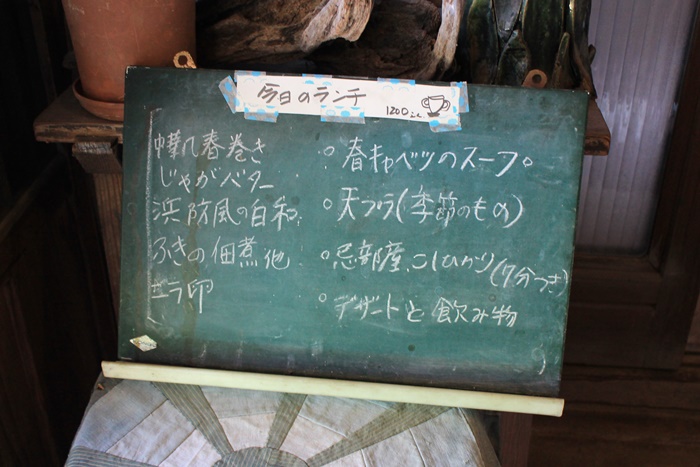 今日のランチ
1200こえ
中華風春巻き
じゃがバター
浜防風の白和
ふきの佃煮他
ミラ卵
○春キャベツのスープ○
○天プラ(季節のもの)
○忌部産、こしひかり(7分つき)
○デザートと飲み物